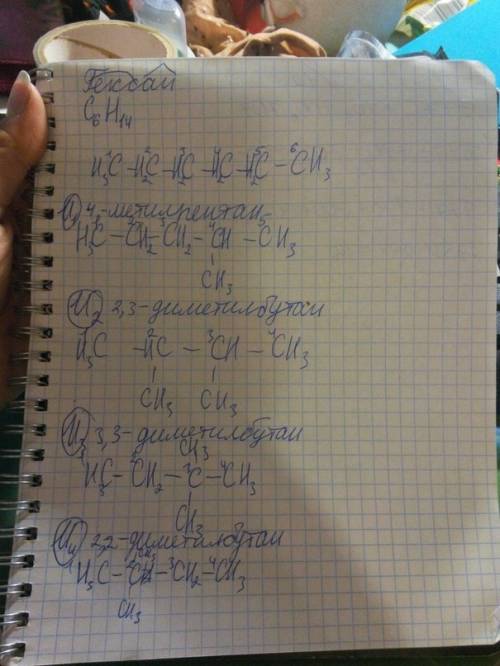 Гексан
C6H14
H3C - H2C - H2C - H2C - H2C - CH3
И1 4-метилпентан
H3C - CH2 - CH2 - CH - CH3
CH3
И2 2,3-диметилбутан
H3C - HC - CH - CH3
CH3 CH3
И3 3,3-диметилбутан
CH3
H3C - CH2 - C - CH3
CH3
И4 2,2-диметилбутан
H3C - C - CH2 - CH3
CH3